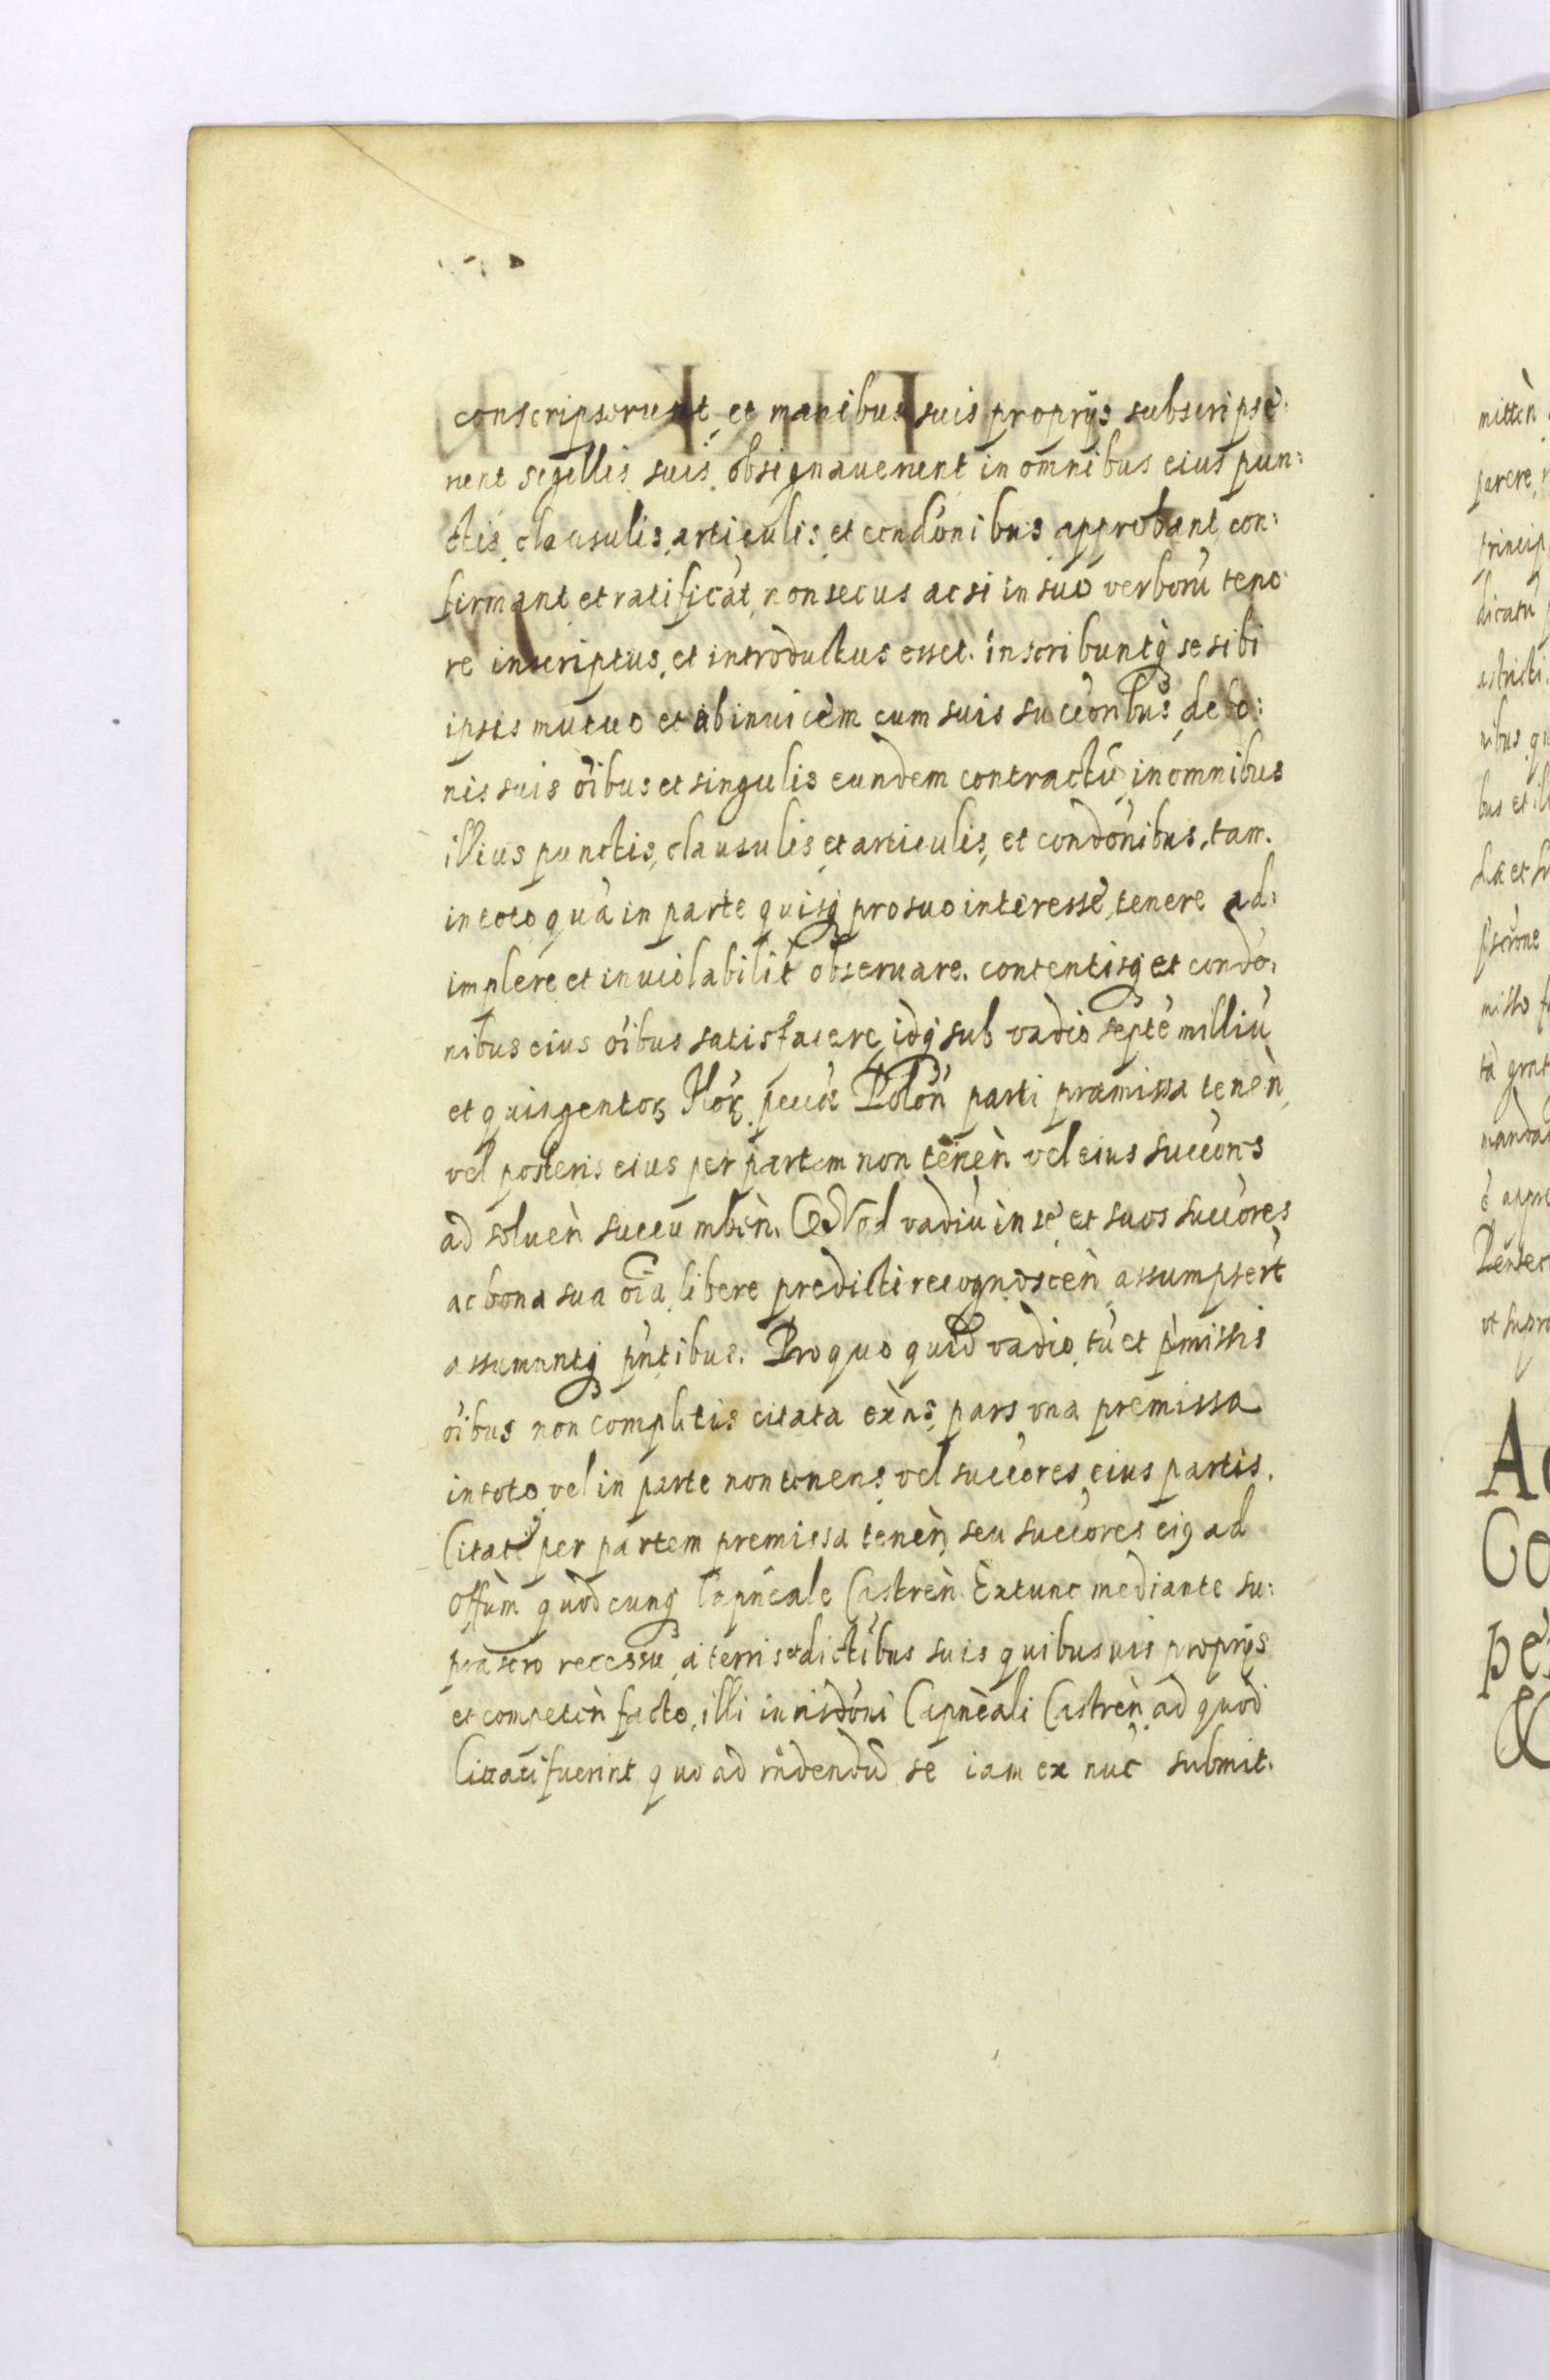 conscripserunt, et manibus suis proprijs subscripse:
runt sigillis suis obsignauerunt in omnibus eius pun:
ctis, clausulis, articulis, et condónibus approbant, con:
firmant et ratificāt, non secus ac si in suo verborū teno
re inscriptus, et introductus esset. inscribuntq́ se sibi
ipsis mutuo et ab inuicèm cum suis succoribus, de bo:
nis suis oībus et singulis eundem contractū, in omnibus
illius punctis, clausulis, et articulis, et condónibus, tam.
in toto quā in parte quisq́ pro suo interesse, tenere ad:
implere et inuiolabilit̄ obseruare. contentisq́ et condó:
nibus eius oībus satisfacere, idq́ sub vadio septē milliū
et quingentoꝝ flóꝝ pecúæ Polón parti præmissa tenèn,
vel posteris eius per partem non tenèn vel eius succores
ad soluèn succumbèn. Qvod vadiū in se et suos succores
ac bona sua oīa, libere predicti recognoscèn assumpsert̄
assumuntq́ pn̄tibus. Pro quo quid vadio, tū et pmissis
oībus non completis citata exn̄s, pars vna premissa
in toto vel in parte non tenens, vel succores eius partis.
Citati per partem premissa tenèn, seu succores eiꝰ ad
Offūm quodcunq́ Capneale Castrèn. Extunc mediante su:
prascro recessu, a terris et dictībus suis quibusuis proprijs
et competèn facto, illi iurisdóni Capneali Castrèn, ad quod
Cittati fuerint quo ad rn̄dendū se iam ex nūc submit.